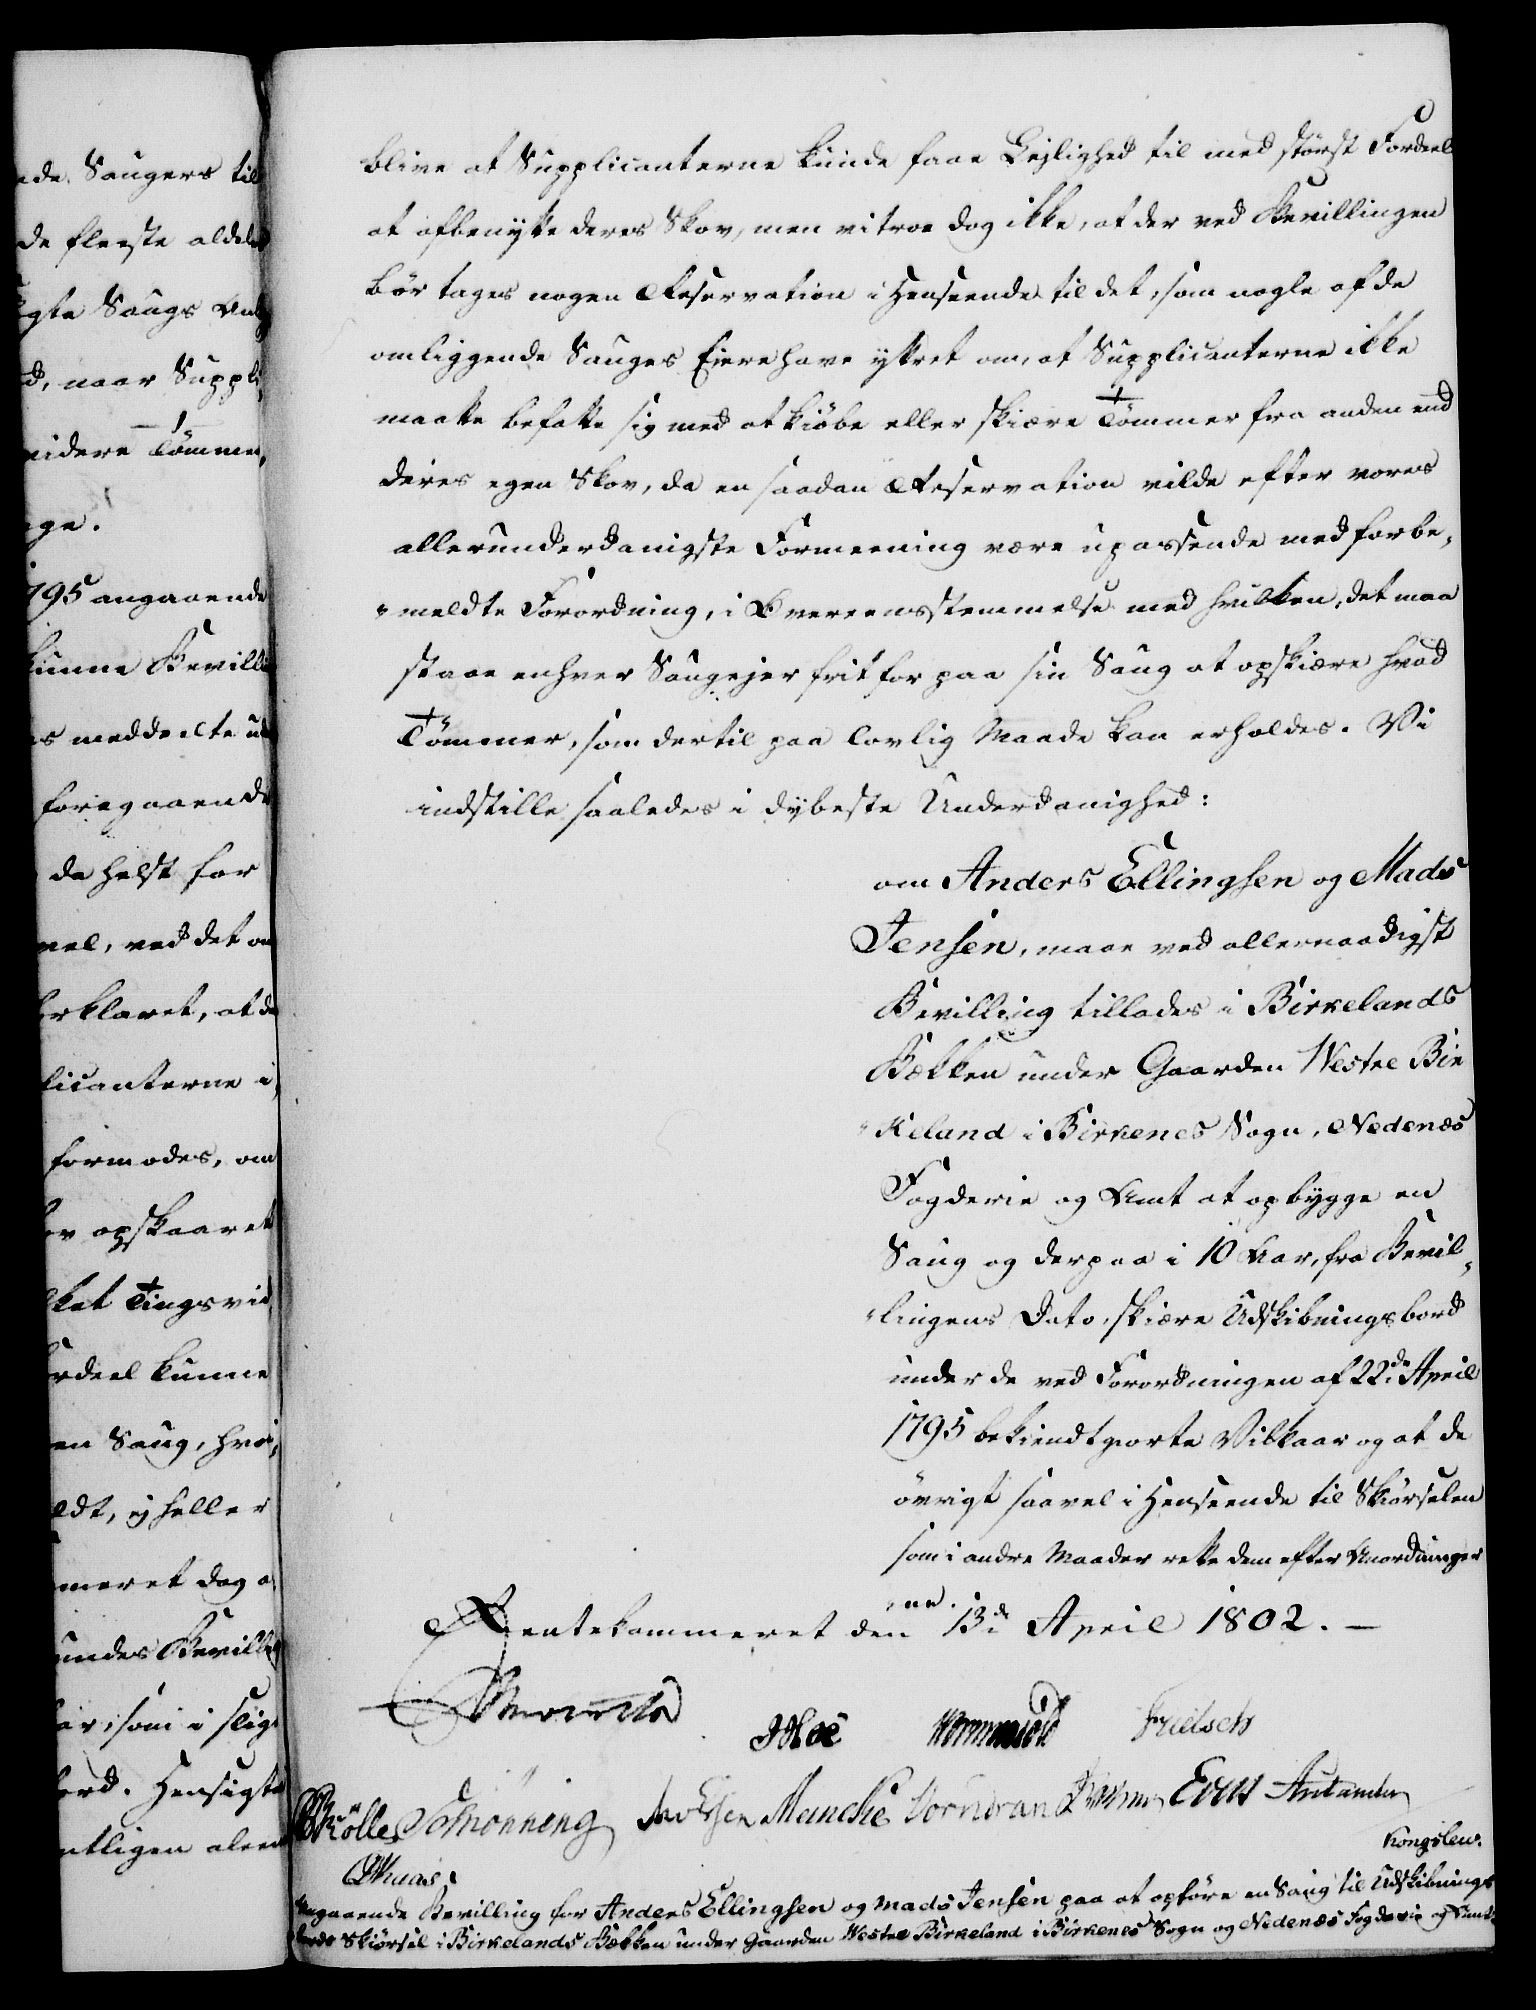 ede Saugers til
de fleeste aldeles
gte Saugs An¬
d, naar Suppli¬
videre Tømmer,
ge.
1795 angaaende
kunne Bevilli
s meddeelte ud
foregaaende
da helst for
vel, ved det om
erklaret, at de
licanterne i,
formodes, om
ov opskaaret
ket Tingsvid,
ordeel kunne
en Saug, hvi,
ldt, ej heller
meret dog a
undes Bevilli
ar, som i slig
ord. Hensigte
ntligen aleen
blive at Supplicanterne kunde faae Lejlighed til med størst Fordeel
at afbenytte deres Skov, men vi troe dog ikke, at der ved Bevillingen
bør tages nogen Reservation i Henseende til det, som nogle af de
omliggende Sauges Eiere have yttret om, at Supplicanterne ikke
maatte befatte sig med at kiøbe eller skiære Tømmer fra anden end
deres egen Skov, da en saadan Reservation vilde efter vores
allerunderdanigste Formeening være upassende med forbe„
„meldte Forordning, i Overeensstemmelse med hvilken, det maa
staae enhver Saugejer frit for paa sin Saug at opskiære hvad
Tømmer, som dertil paa lovlig Maade kan erholdes. Vi
indstille saaledes i dybeste Underdanighed:
om Anders Ellingsen og Mads
Jensen, maae ved allernaadigst
Bevilling tillades i Birkelands
Bækken under Gaarden Westre Bir
„keland i Birkenes Sogn, Nedenæs
Fogderie og Amt at opbygge en
Saug og derpaa i 10 Aar, fra Bevil„
„lingens Dato, skiære Udskibningsbord
under de ved Forordningen af 22de April
1795 bekiendtgiorte Vilkaar og at de
øvrigt saavel i Henseende til Skiørselen
som i andre Maader rette dem efter Anordninger
„ne.
Rentekammeret den 13de April 1802. —
JHoe Wormskiold Frielsch
Rølles Schønning Munche Vorndran
Kongslew.
Angaaende Bevilling for Anders Ellingsen og Mads Jensen paa at opføre en Saug til Udskibnings
bords Skiørsel i Birkelands Bækken under Gaarden Westre Birkeland i Birkenes Sogn og Nedenæs Fogderie og Amt.